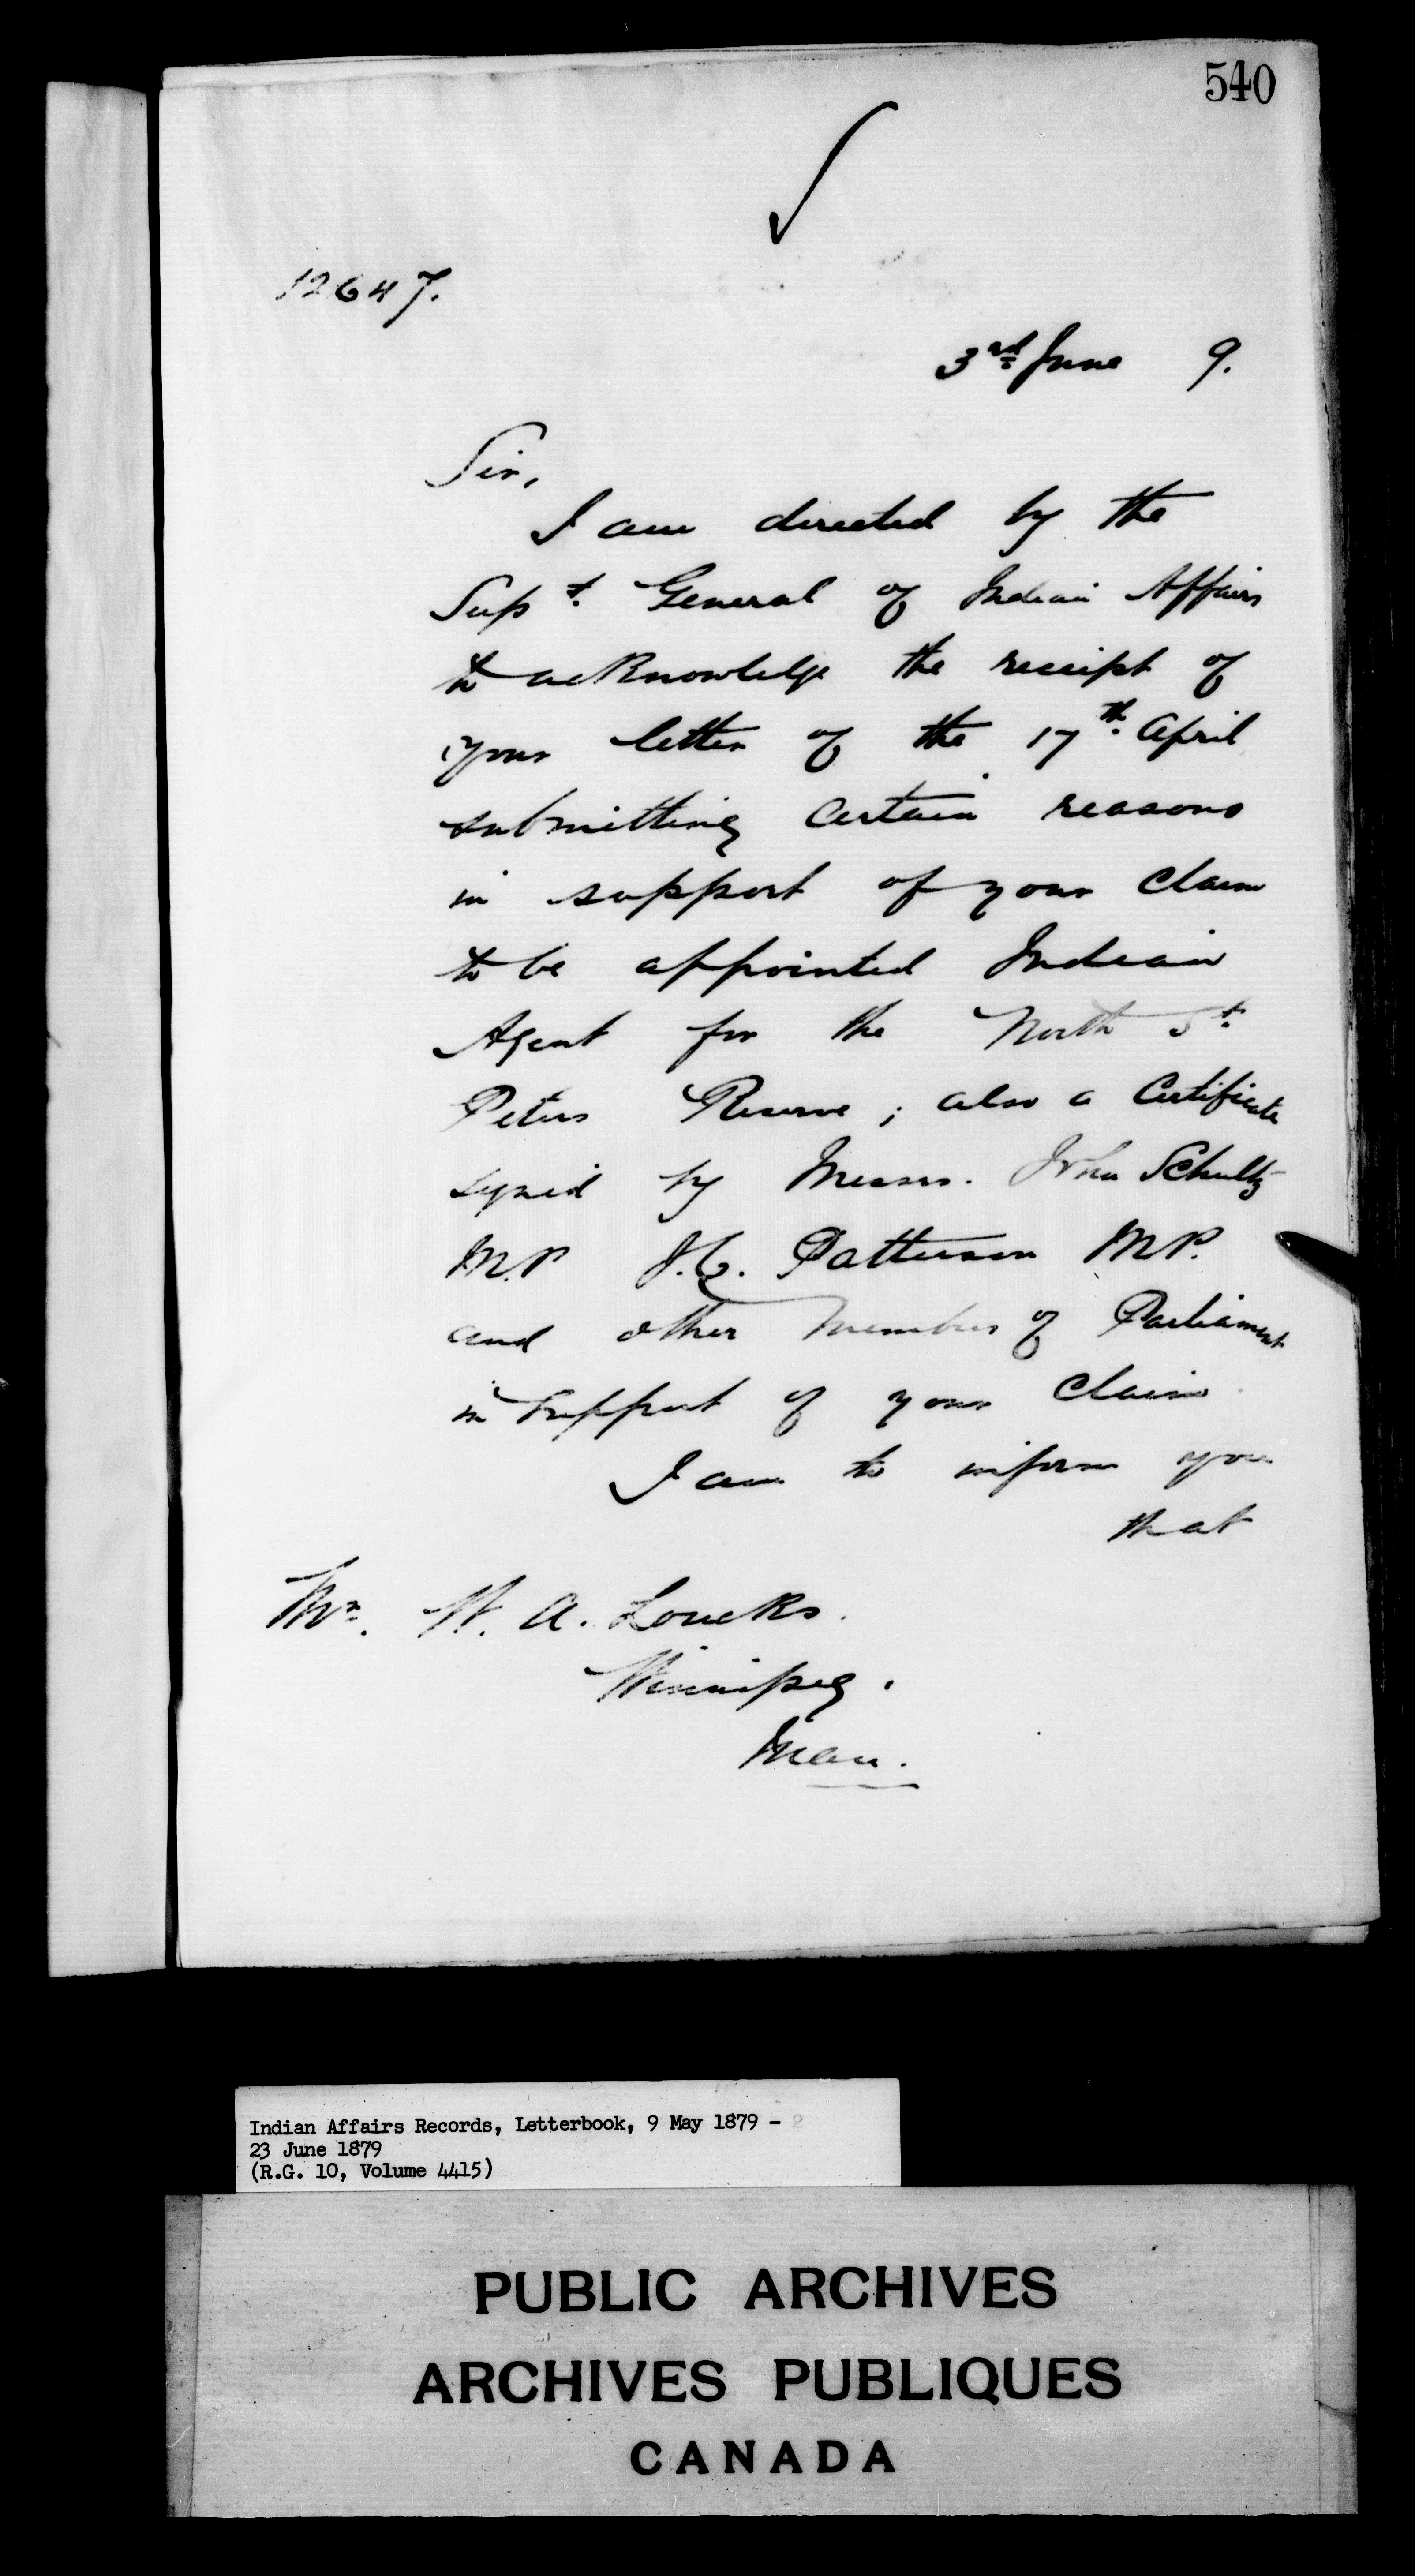 540
12647.
3rd June 9.
Sir,
I am directed by the
Supt. General of Indian Affairs
to acknowledge the receipt of
your letter of the 17th. April
submitting certain reasons
in support of your claim
to be appointed Indian
Agent for the North St.
Peters Reserve; also a Certificate
signed by Messrs. John Schultz
M.P J.C. Patterson M.P.
and other members of Parliament
in support of your claim
I am to inform you
that
Mr. W. A. Loucks.
Winnipeg.
Man.
Indian Affairs Records, Letterbook, 9 May 1879 -
23 June 1879
(R.G. 10, Volume 4415)
PUBLIC ARCHIVES
ARCHIVES PUBLIQUES
CANADA